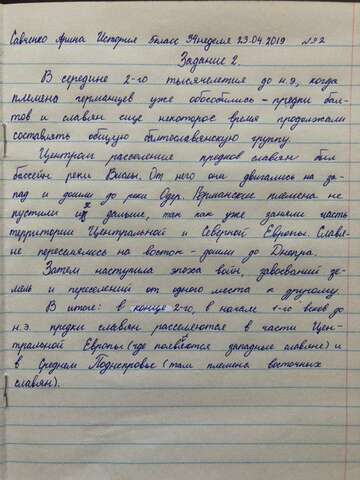 Савченко Арина История 6класс 34неделя 23.04.2019 №2
Задание 2.
В середине 2-го тысячелетия до н.э, когда
племена германцев уже обособились - предки бал-
тов и славян еще некоторое время продолжали
составлять общую балтославенскую группу.
Центром расселения предков славян был
бассейн реки Вислы. От него они двигались на за-
пад и дошли до реки Одер. Германские племена не
пустили их дальше, так как уже заняли часть
территории Центральной и Северной Европы. Славя-
не переселялись на восток - дошли до Днепра.
Затем наступила эпоха войн, завоеваний зе-
мель и переселений от одного места к другому.
В итоге: в конце 2-го, в начале 1-го веков до
н.э. предки славян расселяются в части Цен-
тральной Европы (где появляются западные славяне) и
в Среднем Поднепровье (там племена восточных
славян).